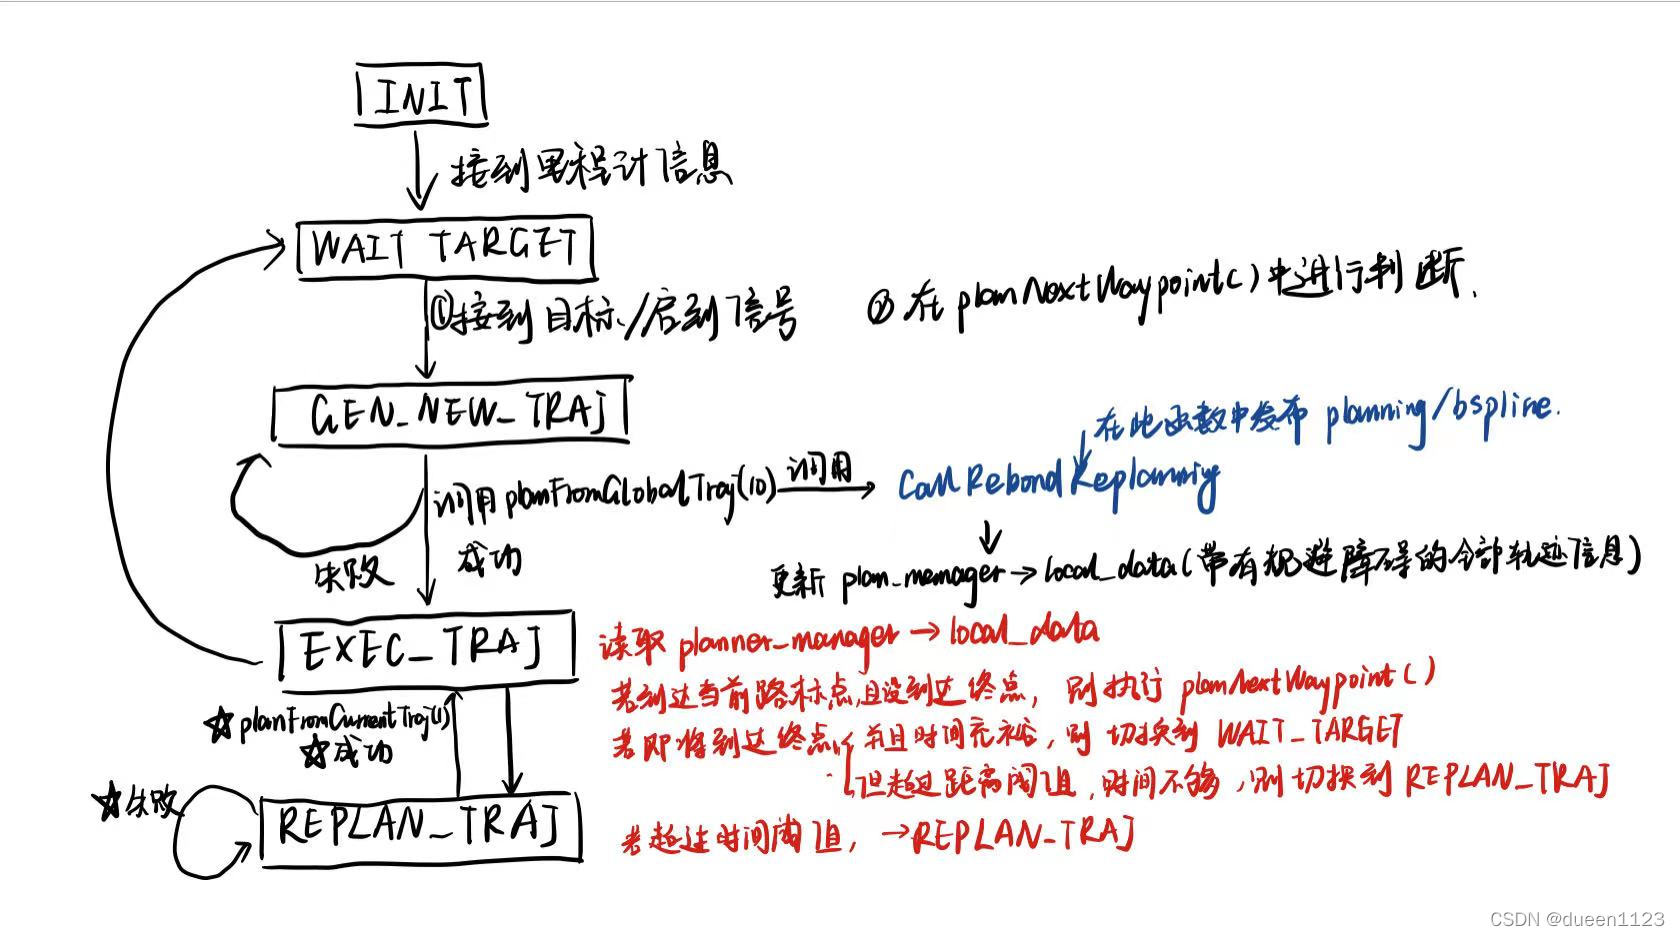 INIT
接到里程计信息
WAIT TARGET
①接到目标/启到信号
② 在 planNextWaypoint()中进行判断.
GEN_NEW_TRAJ
在此函数中发布 planning/bspline.
调用 planFromGlobalTraj(10) 调用
Call Rebond Replanning
失败
成功
更新 plan_manager → local_data(带有规避障碍的全部轨迹信息)
EXEC_TRAJ
读取 planner_manager → local_data
若到达当前路标点,且没到达终点, 则执行 planNextWaypoint()
☆planFromCurrentTraj(1)
☆成功
若即将到达终点, 并且时间充裕, 则 切换到 WAIT_TARGET
但超过距离阈值, 时间不够, 则切换到 REPLAN_TRAJ
☆失败
REPLAN_TRAJ
若超过时间阈值, →REPLAN_TRAJ
CSDN @dueen1123